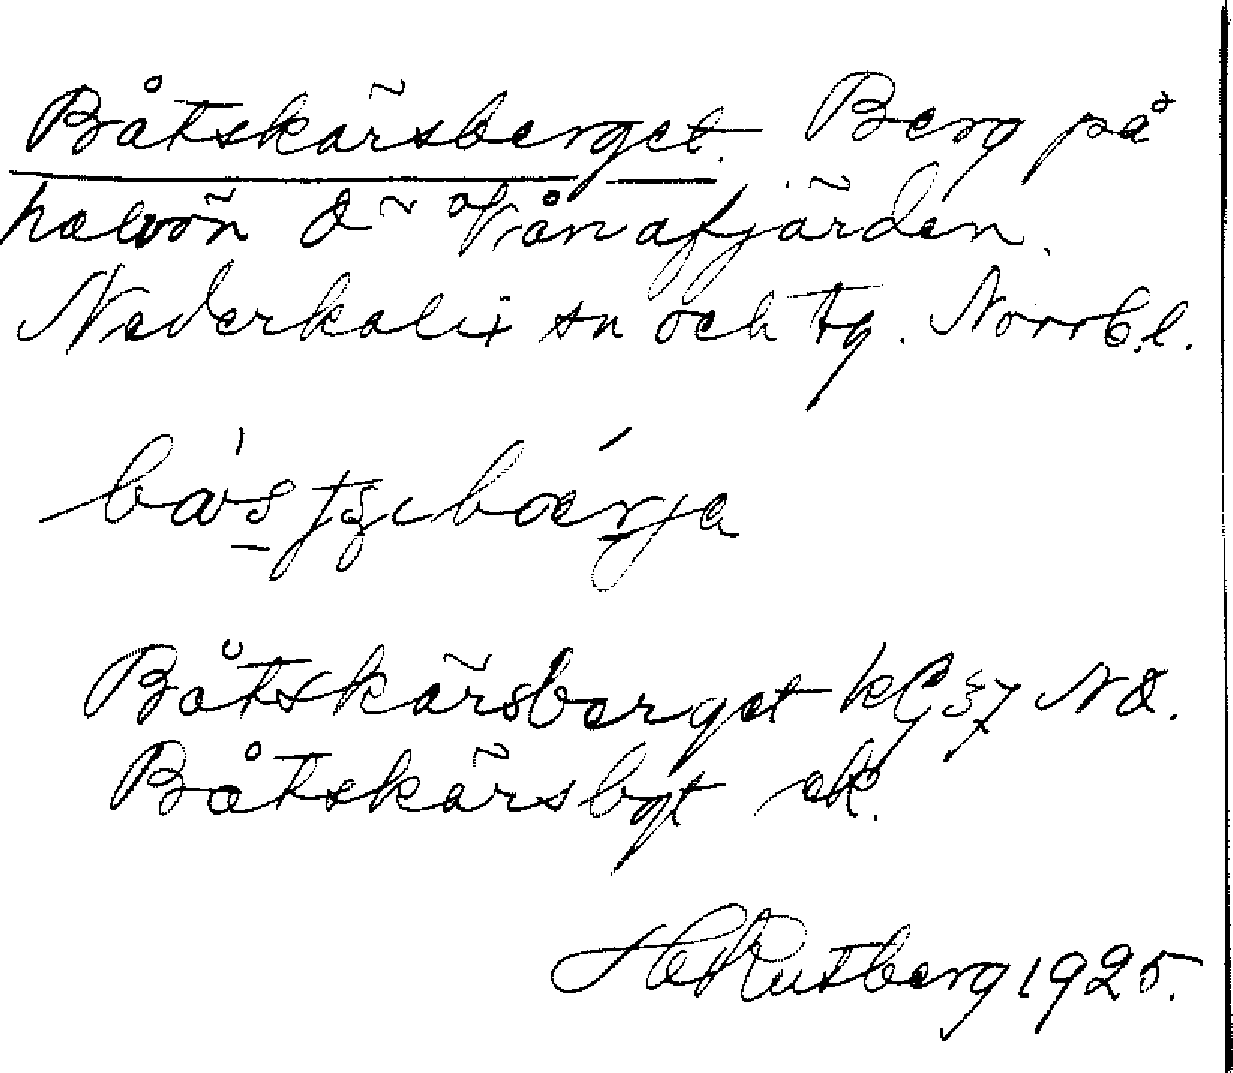 Båtskärsberget. Berg på
halvön Ö Vånafjärden.
Nederkalix sn och tg. Norrb.l.
Båtskärsberget kG 37 NÖ.
Båtskärsbgt ek.
H Rutberg 1925.